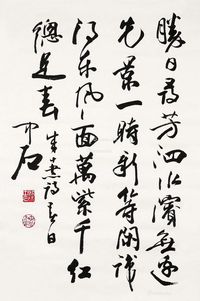 勝日尋芳泗水濱無邊
光景一時新等閑識
得東風面萬紫千紅
總是春 朱熹詩春日
中石